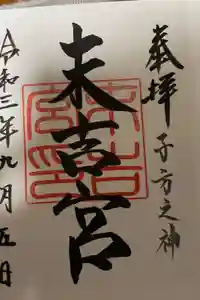 奉拝 子方之神
末吉宮
令和三年九月五日